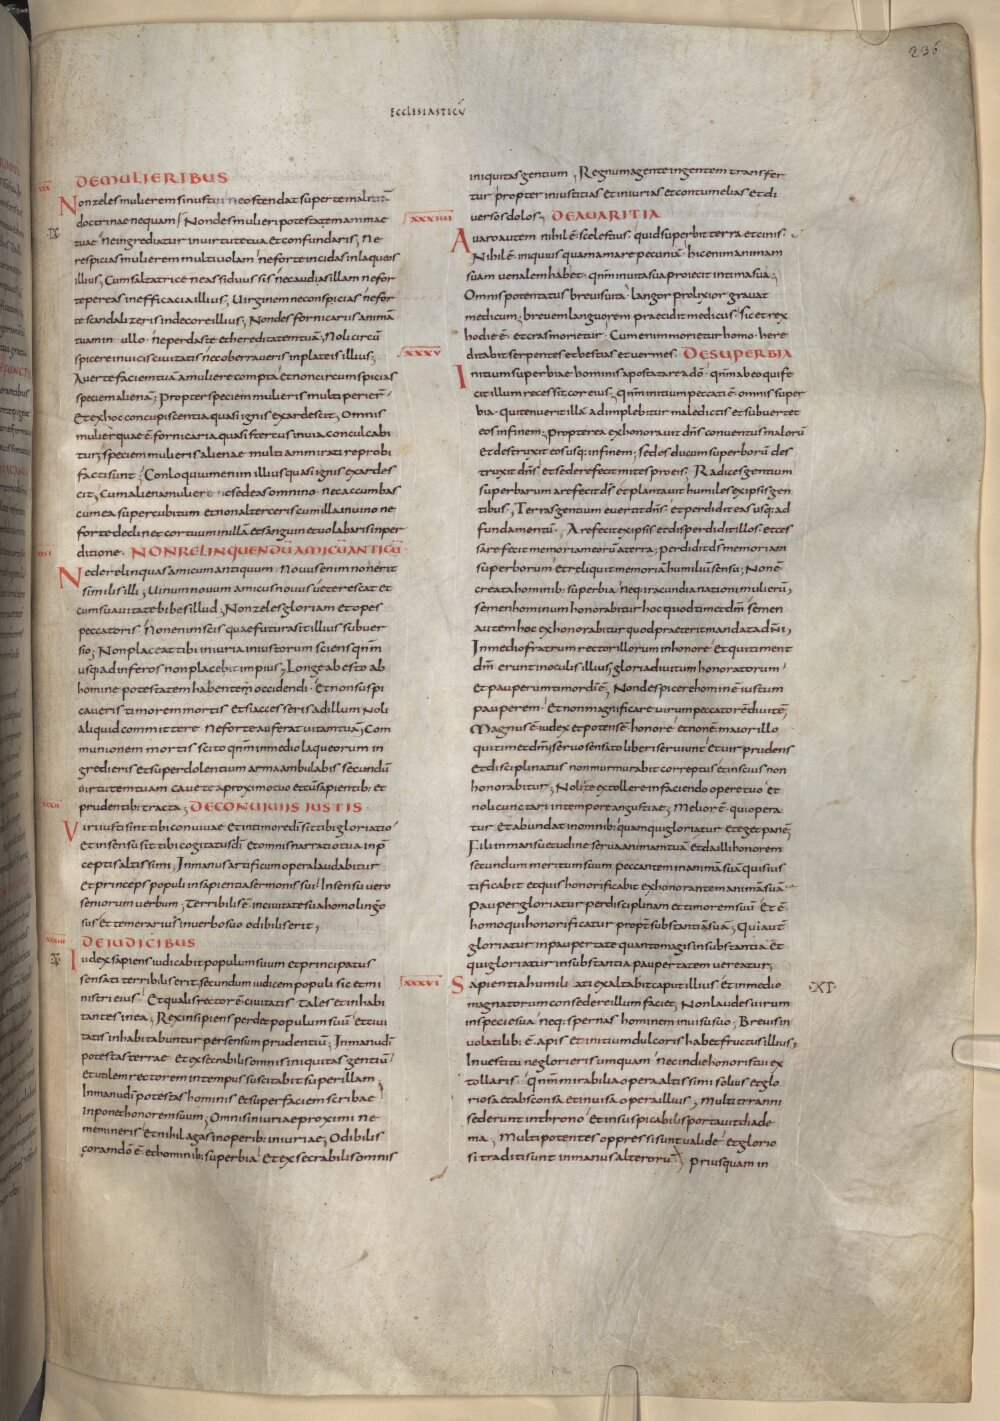 236
ECCLESIASTICŪ
XXX DE MULIERIBUS
Non zeles mulierem sinus tui ne ostendat super te malitiā
IX doctrinae nequam; Non des mulieri potestatem animae
tuae ne ingrediatur in uirtute tua et confundaris; Ne
respicias mulierem multiuolam ne forte incidas in laqueos
illius; Cum saltatrice ne assiduus sis nec audias illam ne for
te pereas in efficacia illius; Uirginem ne conspicias ne for
te scandalizeris in decore illius; Non des fornicariis animā
tuam in ullo ne perdas te et hereditatem tuā; Noli circū
spicere in uicis ciuitatis nec oberraueris in plateis illius;
Auerte faciem tuā a muliere compta et non circumspicias
speciem alienā; Propter speciem mulieris multi perier̄
Et ex hoc concupiscentia quasi ignis exardescit; Omnis
mulier quae ē fornicaria quasi stercus in uia conculcabi
tur; speciem mulieris alienae multi ammirati reprobi
facti sunt; Conloquium enim illius quasi ignis exardes
cit; Cum aliena muliere ne sedeas omnino nec accumbas
cum ea super cubitum et non alterceris cum illa in uino ne
forte declinet cor tuum in illā et sanguine tuo labaris in per
ditione. NON RELINQUENDŪ AMICŪ ANTICŪ
Ne derelinquas amicum antiquum. Nouus enim non erit
similis illi; Uinum nouum amicus nouus ueterescat et
cum suauitate bibes illud; Non zeles gloriam et opes
peccatoris Non enim scis quae futura sit illius subuer
sio; Non placeat tibi iniuria iniustorum sciens qnm̄
usq; ad inferos non placebit impius; Longe abesto ab
homine potestatem habentem occidendi. Et non suspi
caueris timorem mortis Et si accesseris ad illum Noli
aliquid committere Ne forte auferat uitam tuā; Com
munionem mortis scito qnm̄ in medio laqueorum in
gredieris et super dolentium arma ambulabis secundū
uirtutem tuam caue te a proximo tuo et cū sapientib; et
XXXII prudentib; tracta; DE CONUIUIIS IUSTIS
Uiri iusti sint tibi conuiuae Et in timore dī sit tibi gloriatio
Et in sensu sit tibi cogitatus dī Et omnis narratio tua in p̄
ceptis altissimi; In manus artificum opera laudabitur
Et princeps populi in sapientia sermonis sui In sensu uero
seniorum uerbum; Terribilis ē in ciuitate sua homo linguo
sus Et temerarius in uerbo suo odibilis erit;
XXXIII DE IUDICIBUS
X Iudex sapiens iudicabit populum suum et principatus
sensati terribilis erit, secundum iudicem populi sic et mi
nistri eius. Et qualis rector ē ciuitatis Tales et inhabi
tantes in ea; Rex insipiens perdet populum suū Et ciui
tatis inhabitabuntur per sensum prudentiū; In manu dī
potestas terrae Et execrabilis omnis iniquitas gentiū
Et utilem rectorem in tempus suscitabit super illam
In manu dī potestas hominis et super faciem scribae
inponet honorem suum; Omnis iniuriae proximi ne
memineris Et nihil agas in operib; iniuriae; Odibilis
coram dō ē et hominib; superbia Et execrabilis omnis
iniquitas gentium; Regnum a gente in gentem transfer
tur propter iniustitias Et iniurias et contumelias et di
XXXIIII uersos dolos; DE AUARITIA
Auaro autem nihil ē scelestius. quid superbit terra et cinis.
Nihil ē iniquius quam amare pecuniā hic enim animam
suam uenalem habet qnm̄ in uita sua proiecit intima sua;
Omnis potentatus breuis uita langor prolixior grauat
medicum; breuem languorem praecidit medicus. Sic et rex
hodie ē et cras morietur. Cum enim morietur homo. here
XXXV ditabit serpentes et bestias et uermes. DE SUPERBIA
Initium superbiae hominis apostatare a dō. qnm̄ ab eo qui fe
cit illum recessit cor eius. Qnm̄ initium peccati ē omnis super
bia. Qui tenuerit illā adimplebitur maledictis et subuertet
eos in finem; Propterea exhonorauit dn̄s conuentus malorū
Et destruxit eos usq; in finem; sedes ducum superborū des
truxit dn̄s et sedere fecit mites pro eis. Radices gentium
superbarum arefecit dn̄s et plantauit humiles ex ipsis gen
tibus; Terras gentium euertit dn̄s et perdidit eas usq; ad
fundamentū; Arefecit ex ipsis et disperdidit illos et ces
sare fecit memoriam eorū a terra; perdidit dn̄s memoriam
superborum et reliquit memoriā humiliū sensu; Non ē
creata hominib; superbia neq; iracundia nationi mulierū;
semen hominum honorabitur hoc quod timet dm̄ semen
autem hoc exhonorabitur quod praeterit mandata dn̄i;
In medio fratrum rector illorum in honore Et qui timent
dm̄ erunt in oculis illius; gloria diuitum honoratorum
et pauperum timor dī ē; Non despicere hominē iustum
pauperem Et non magnificare uirum peccatorē diuitē;
Magnus ē iudex et potens ē honore et non ē maior illo
qui timet dm̄; seruo sensato liberi seruiunt Et uir prudens
Et disciplinatus non murmurabit correptus et inscius non
honorabitur; Noli te extollere in faciendo opere tuo et
noli cunctari in tempore angustiae; Melior ē qui opera
tur Et abundat in omnib; quam qui gloriatur Et eget pane;
Fili in mansuetudine serua animam tuā Et da illi honorem
secundum meritum suum peccantem in animā suā quis ius
tificabit et quis honorificabit exhonorantem animā suā
Pauper gloriatur per disciplinam et timorem suū Et ē
homo qui honorificatur propt̄ substantiā suā; Qui aut̄
gloriatur in paupertate quanto magis in substantia Et
qui gloriatur in substantia paupertatem uereatur;
XXXVI Sapientia humiliati exaltabit caput illius Et in medio XI
magnatorum consedere illum faciet; Non laudes uirum
in specie sua neq; spernas hominem in uisu suo; Breuis in
uolatilib; ē apis Et initium dulcoris habet fructus illius;
In uestitu ne glorieris umquam nec in die honoris tui ex
tollaris Qnm̄ mirabilia opera altissimi solius et glo
riosa et absconsa et inuisa opera illius; Multi tyranni
sederunt in throno Et insuspicabilis portauit diade
ma; Multi potentes oppressi sunt ualide Et glorio
si traditi sunt in manus alterorū; Priusquam in